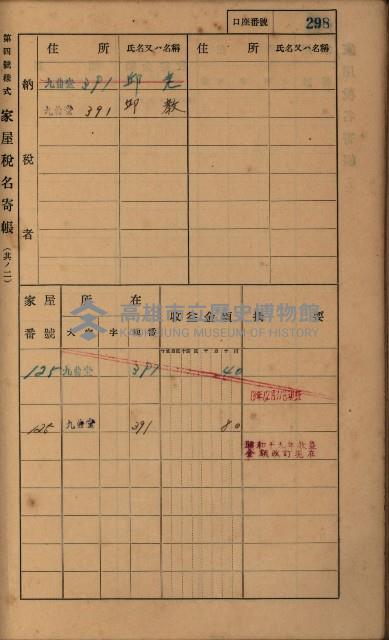 口座番號 298
第四號樣式 家屋稅名寄帳 (其ノ二)
納稅者
住所 氏名又ハ名稱 住所 氏名又ハ名稱
九曲堂 391 邱
九曲堂 391 邱 教
家屋番號 所在 收益金額 摘要
大字 字 地番
125 九曲堂 391 40
125 九曲堂 391 80
昭和十九年收益
金額改訂現在
高雄市立歷史博物館
KAOHSIUNG MUSEUM OF HISTORY